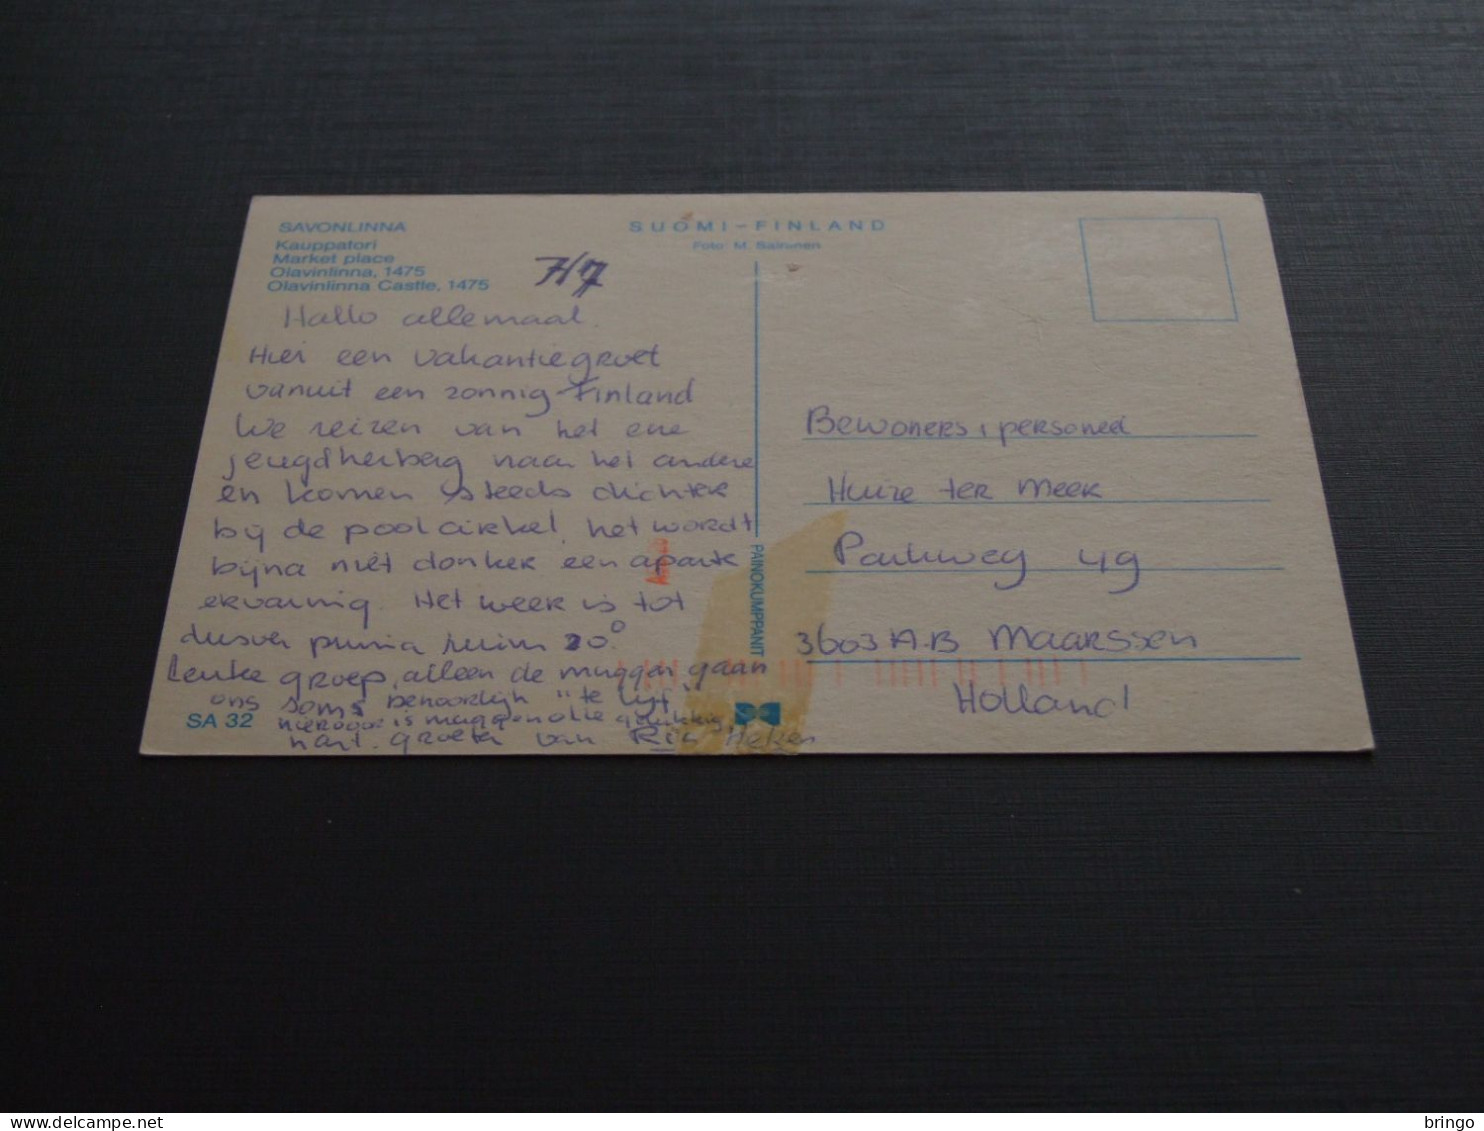 SAVONLINNA
Kauppatori
Market place
Olavinlinna, 1475
Olavinlinna Castle, 1475
SUOMI-FINLAND
Foto: M. Sairanen
H7
Hallo allemaal.
Hier een vakantiegroet
vanuit een zonnig Finland
We reizen van het ene
jeugdherberg naar het andere
en komen steeds dichter
bij de poolcirkel, het wordt
bijna niet donker een aparte
ervaring. Het weer is tot
dusver prima ruim 20°
Leuke groep, alleen de muggen gaan
ons soms behoorlijk "te lijf"
hiervoor is muggenolie gelukkig
hart. groeten van Ria
SA 32
PAINOKUMPPANIT
Bewoners, personeel
Huize ter Meer
Parkweg 49
3603 A.B Maarssen
Holland
bringo